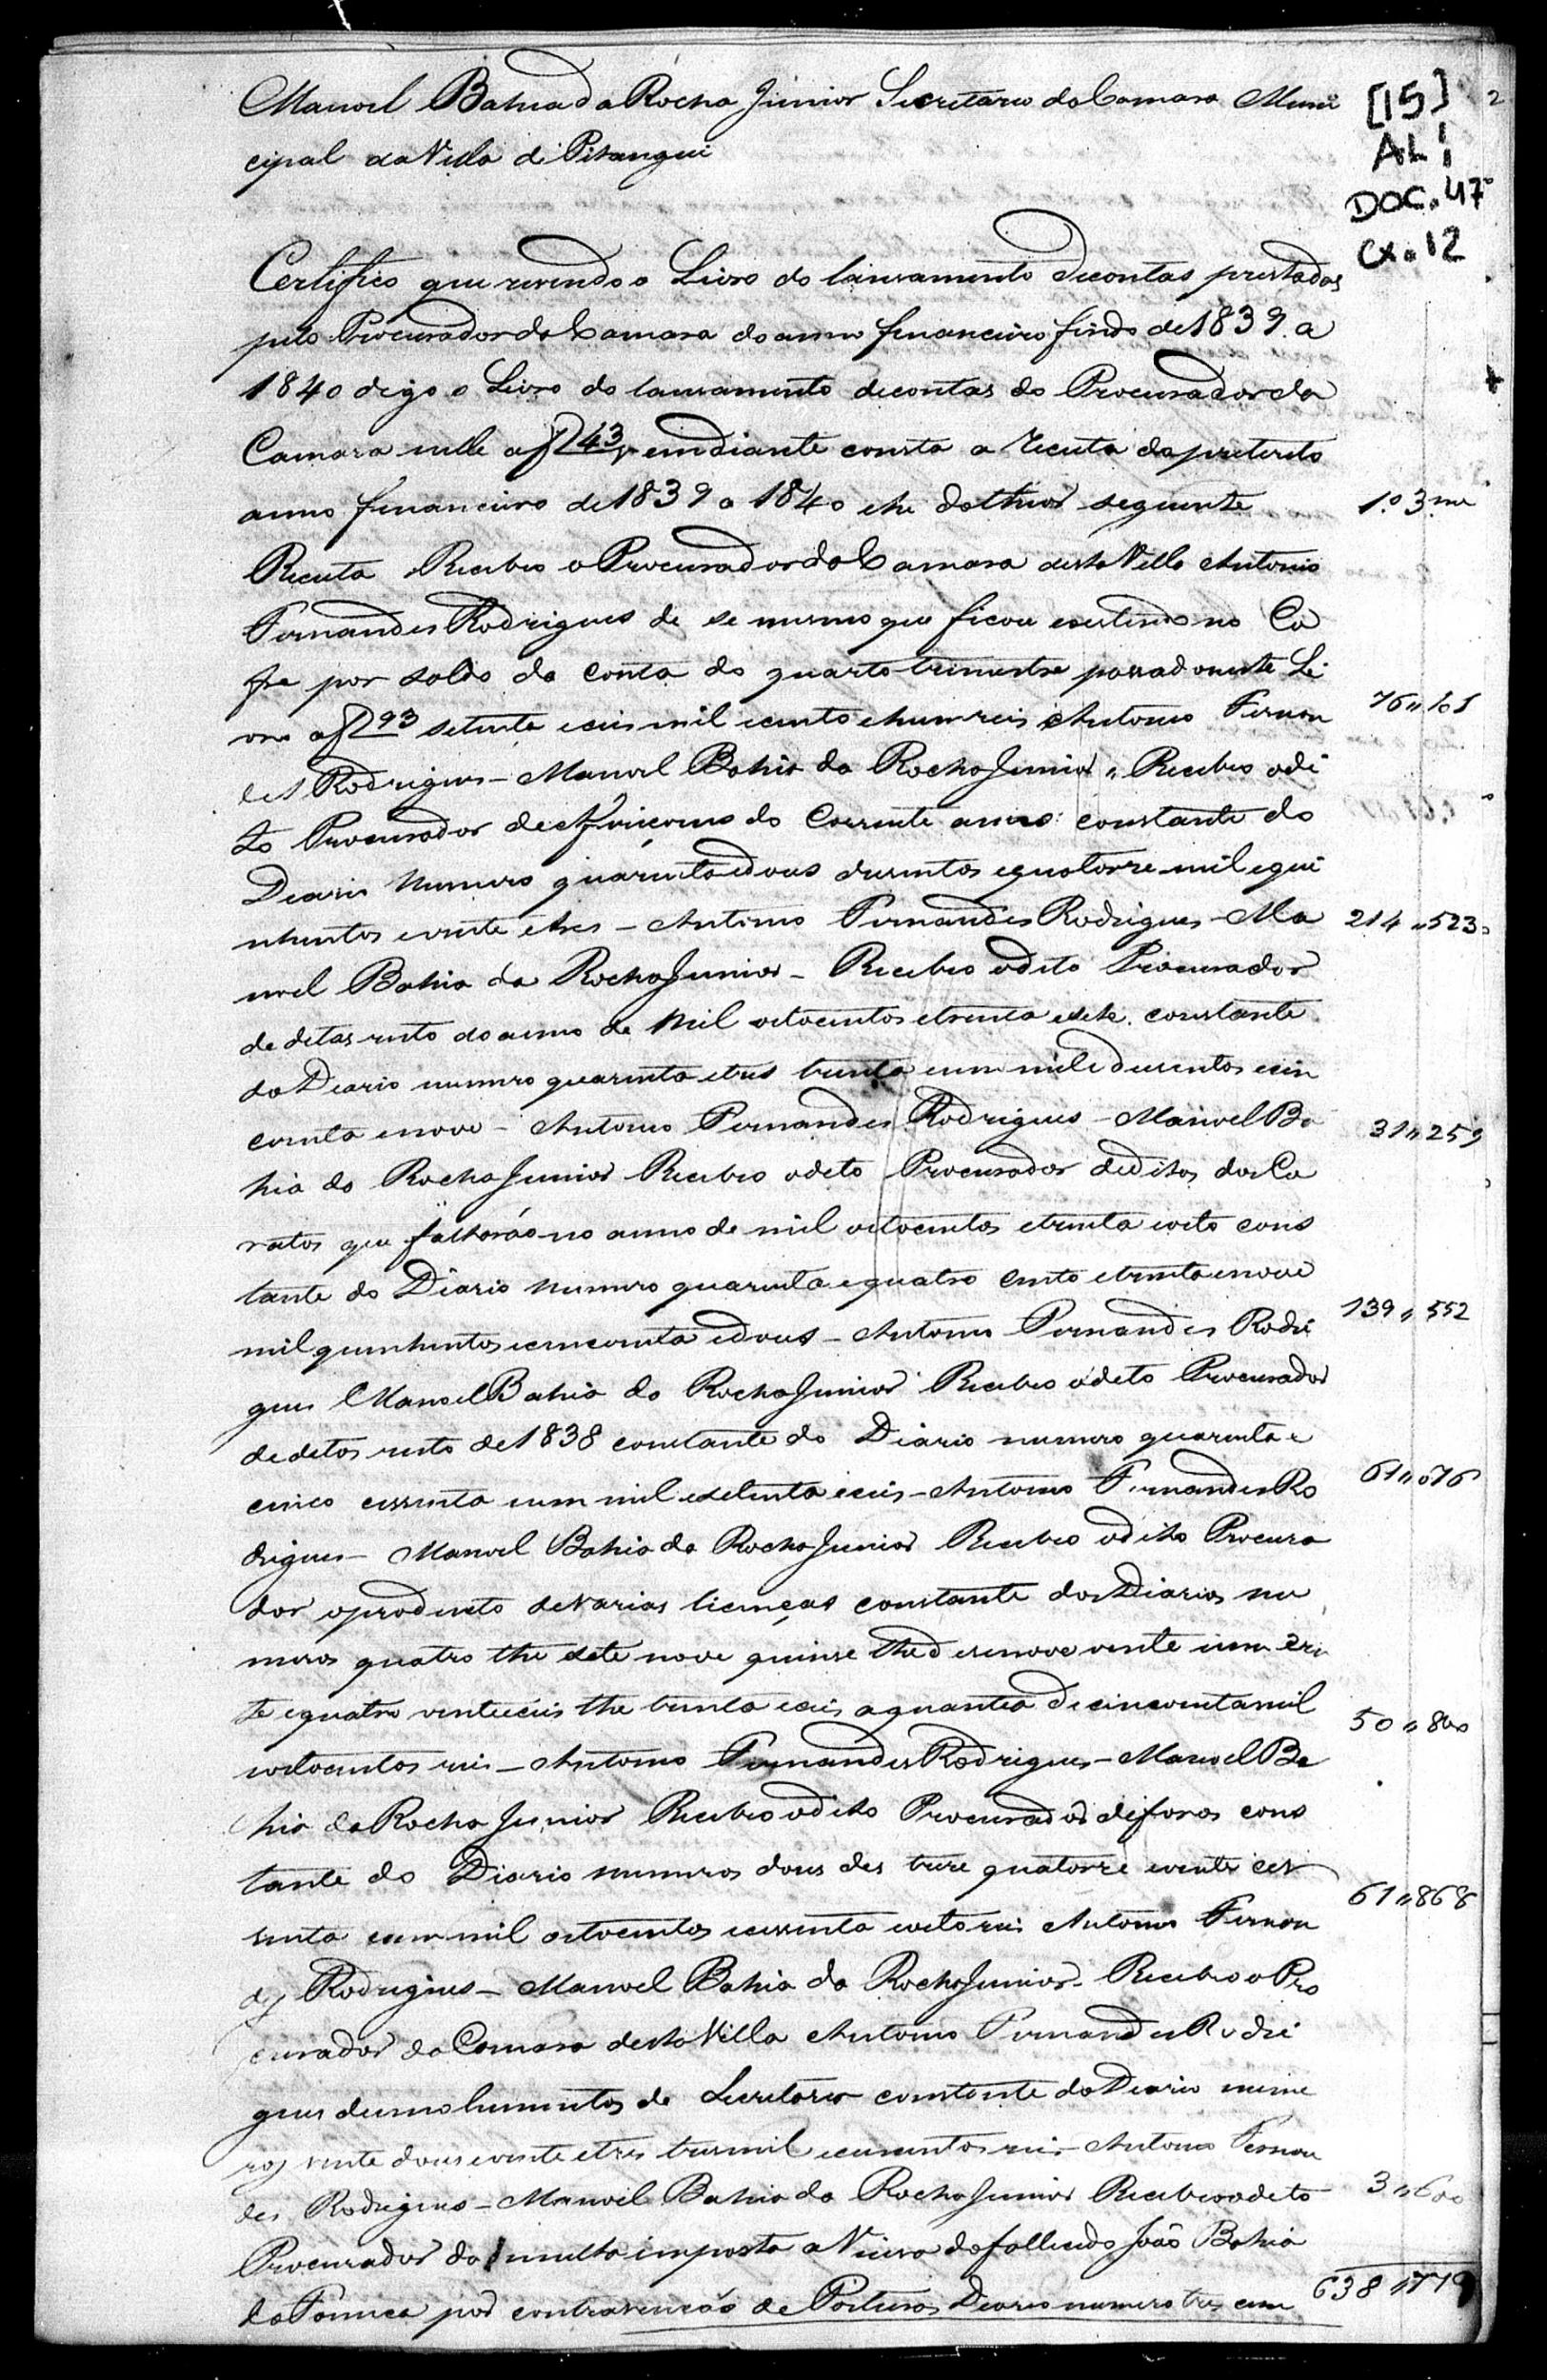 Manoel Bahia da Rocha Junior Secretario da Camara Muni
[15] 2
cipal da Villa de Pitangui
AL1
DOC. 47
CX. 12
Certifico que revendo o Livro do lansamento de contas prestadas
pelo Procurador da Camara do anno financeiro findo de 1839. a
1840 digo o Livro do lansamento de contas do Procurador da
Camara nelle a f 43 em diante consta a Receita do preterito
anno financeiro de 1839 a 1840 e he do theor seguinte
1.º 3.me
Receita Recebeo o Procurador da Camara desta Villa Antonio
Fernandes Rodrigues de se mesmo que ficou existindo no Co
fre por saldo da Conta do quarto trimestre passado neste Li
vro a f 93 setenta e ceis mil e cento e hum reis Antonio Fernan
76 " 101
des Rodrigues - Manoel Bahia da Rocha Junior " Recebeo o di
to Procurador de do Corrente anno constante do
Deario Numero quarenta e dous dusentos e quatorze mil e qui
nhentos e vinte e tres - Antonio Fernandes Rodrigues - Ma
214 " 523
noel Bahia da Rocha Junior - Recebeo o dito Procurador
de ditas resto do anno de Mil oitocentos e trinta e sete constante
do Deario numero quarenta e tres trinta e um mil e dusentos e cin
coenta e nove - Antonio Fernandes Rodrigues - Manoel Ba
31 " 259
hia da Rocha Junior Recebeo o deto Procurador de ditos dos Ca
ratos que faltarão no anno de mil oitocentos e trinta e oito cons
tante do Diario numero quarenta e quatro Cento e trinta e nove
mil quinhentos e cincoenta e dous - Antonio Fernandes Rodri
139 " 552
gues Manoel Bahia da Rocha Junior Recebeo o deto Procurador
de detos resto de 1838 constante do Diario numero quarenta e
cinco cessenta e um mil e setenta e ceis - Antonio Fernandes Ro
61 " 076
drigues - Manoel Bahia da Rocha Junior Recebeo o dito Procura
dor o producto de varias licenças constante dos Diarios nu
meros quatro the sete nove quinse the desenove vente um vin
te e quatro vente e ceis the trinta e ceis a quantia de cincoenta mil
50 " 800
e oitocentos reis - Antonio Fernandes Rodrigues - Manoel Ba
hia da Rocha Junior Recebeo o dito Procurador de foros cons
tante do Diario numeros dous des treze quatorze e vente ces
61 " 868
senta e um mil oitocentos e cessenta e oito reis Antonio Fernan
des Rodrigues - Manoel Bahia da Rocha Junior - Recebeo o Pro
curador da Camara desta Villa Antonio Fernandes Rodri
gues de emolumentos de Secretario constante do Deario nume
ros vente dous e vente e tres tres mil e ceiscentos reis - Antonio Fernan
des Rodrigues - Manoel Bahia da Rocha Junior Recebeo o deto
3 " 600
Procurador da multa imposta a Viuva do fallecido João Bahia
da Fonseca por contravenção de Posturas Deario numero tres cem
638 " 779